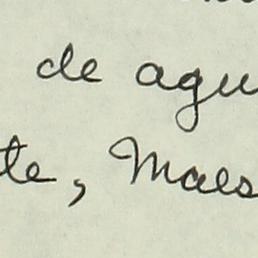 de agu
te, Maes